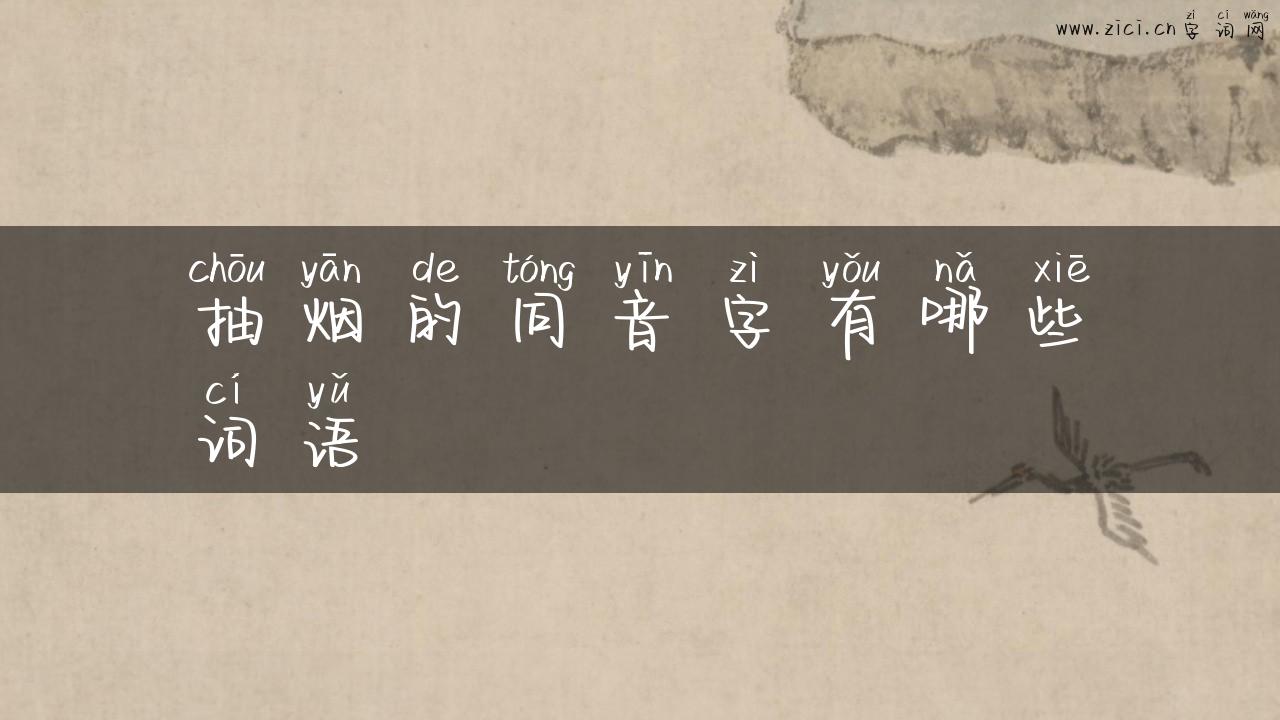 zì cí wǎng
www.zici.cn字词网
chōu yān de tóng yīn zì yǒu nǎ xiē
抽烟的同音字有哪些
cí yǔ
词语